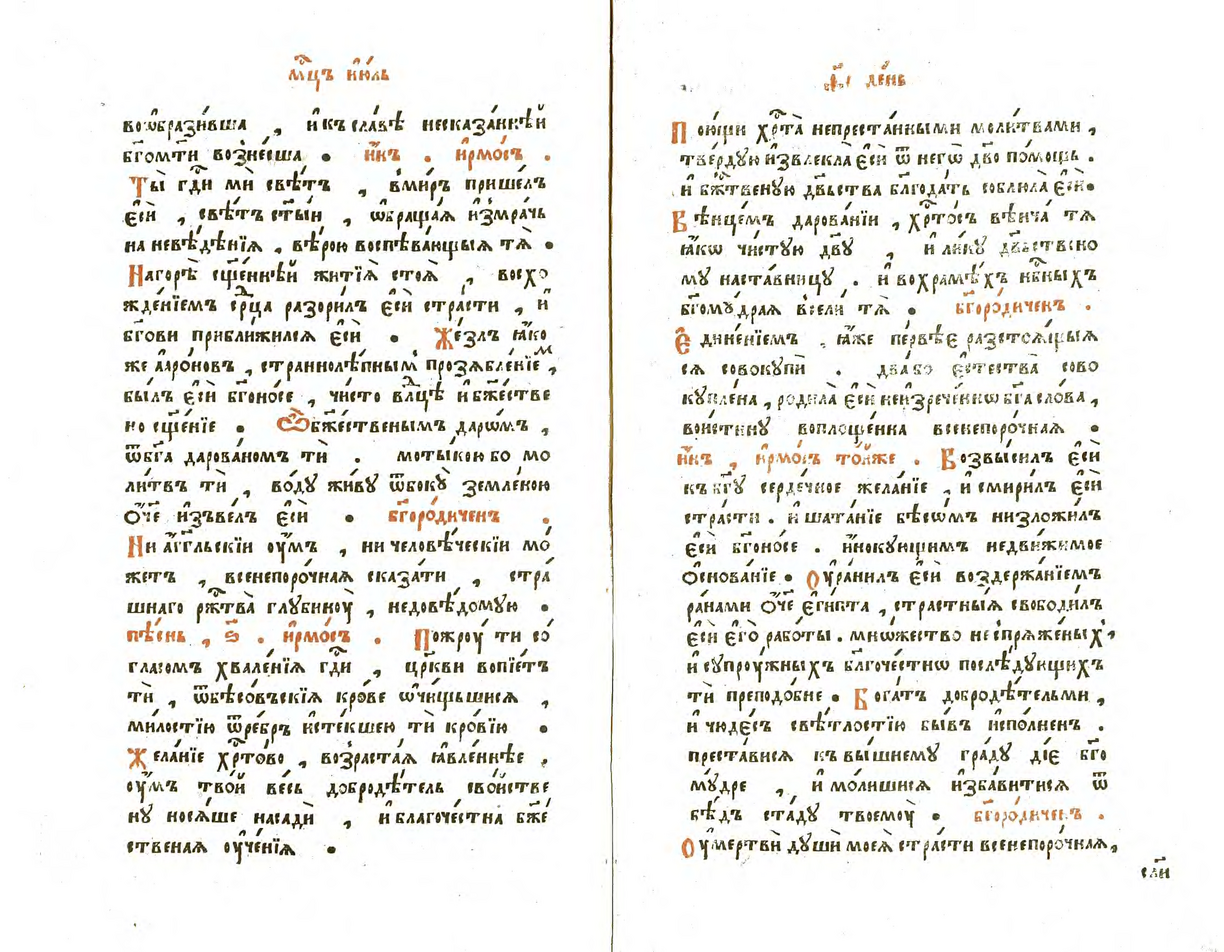 мц҃ъ ию́ль
воѡбрази́вша , и҆къ сла́вѣ несказа́ннѣй
бг҃омт҃и возне́сша . и҆́нъ . і҆рмо́съ .
Ты̀ гд҃и мѝ свѣ́тъ , в̾ми́ръ прише́лъ
є҆сѝ , свѣ́тъ ст҃ы́и , ѡ҆браща́я и҆з̾мра́чь
на невѣ́дѣнїѧ , вѣ́рою воспѣва́ющыѧ тѧ̀ .
Нагорѣ̀ сщ҃е́ннѣй житїѧ̀ стоѧ̀ , восхо
жде́нїемъ ср҃ца разори́лъ є҆сѝ стра́сти , и҆
бг҃ови прибли́жилсѧ є҆сѝ . Же́злъ ꙗ҆́ко
же а҆аро́новъ , страннолѣ́пнымъ прозѧбле́нїемъ ,
бы́лъ є҆сѝ бг҃оно́се , чи́сто влⷣцѣ и҆бж҃е́стве
но сщ҃е́нїе . Ѿбж҃е́ственымъ да́рѡмъ ,
ѿбг҃а дарова́номъ тѝ . моты́кою бо мо
ли́твъ тѝ , во́ду жи́ву ѿбо́ку земле́ною
ѻ҆́ч҃е и҆зъве́лъ є҆сѝ . бг҃оро́диченъ .
Ни а҆́гг҃льскїи оу҆́мъ , ни человѣ́ческїи мо́
жетъ , всенепоро́чнаѧ сказа́ти , стра́
шнаго ржⷭ҇тва̀ глубинꙋ̀ , недовѣ́домую .
пѣ́снь , ѕ҃ . і҆рмо́съ . Пожрꙋ́ ти со́
гла́сомъ хвале́нїѧ гд҃и , цр҃кви вопїе́тъ
тѝ , ѿбѣсо́въскїѧ кро́ве ѡ҆чи́щьшисѧ ,
ми́лостїю ѿре́бръ и҆сте́кшею тѝ кро́вїю .
Жела́нїе хрⷭ҇то́во , возраста́ѧ ꙗ҆вле́ннѣе ,
оу҆́мъ тво́й ве́сь добродѣ́тель сво́йстве
ну нося́ше насадѝ , и҆благоче́стна бж҃е́
ственаѧ оу҆че́нїѧ .
а҃і де́нь
Пою́щи хрⷭ҇та̀ непреста́нными моли́твами ,
тве́рдую и҆звлекла̀ є҆сѝ ѿ негѡ̀ дв҃о по́мощь .
и҆ бж҃твеную дв҃ьства блг҃ода́ть соблюла̀ є҆сѝ .
Вѣнце́мъ дарова́нїи , хрⷭ҇то́съ вѣнча̀ тѧ̀
ꙗ҆́кѡ чи́стую дв҃у , и҆ ли́ку дв҃ьствено
му наста́вницу . и҆ вохра́мѣхъ нбⷭ҇ныхъ
бг҃ому́драѧ вселѝ тѧ̀ . бг҃оро́диченъ .
Є҆дине́нїемъ , ꙗ҆́же пе́рвѣе разстоѧ́щыѧ
сѧ совокупѝ . два́ бо є҆стества̀ сово
ку́плена , родила̀ є҆сѝ неизрече́ннѡ бг҃а сло́ва ,
вои́стину воплоще́нна всенепоро́чная .
и҆́нъ , і҆рмо́съ то́йже . Возвы́силъ є҆сѝ
къ бг҃у серде́чное жела́нїе , и҆ смири́лъ є҆сѝ
стра́сти . и҆ шата́нїе бѣсѡ́мъ низложи́лъ
є҆сѝ бг҃оно́се . и҆́нокующимъ недви́жимое
ѻ҆снова́нїе . Оу҆ра́нилъ є҆сѝ воздержа́нїемъ
ра́нами ѻ҆́ч҃е є҆гѵ́пта , стра́стныѧ свободи́лъ
є҆сѝ є҆гѡ̀ рабо́ты . мно́жество неспрѧже́ныхъ ,
и҆ супрꙋ́жныхъ благоче́стнѡ послѣ́дующихъ
тѝ преподо́бне . Бога́тъ добродѣ́тельми ,
и҆ чюде́съ свѣ́тлостїю бы́въ и҆спо́лненъ .
преста́висѧ къ вы́шнему гра́ду дїе́ бг҃о
му́дре , и҆ мо́лишисѧ и҆зба́витисѧ ѿ
бѣ́дъ ста́ду твоемꙋ̀ . бг҃оро́диченъ .
Оу҆мертвѝ душѝ моеѧ̀ стра́сти всенепоро́чнаѧ ,
сл҃и